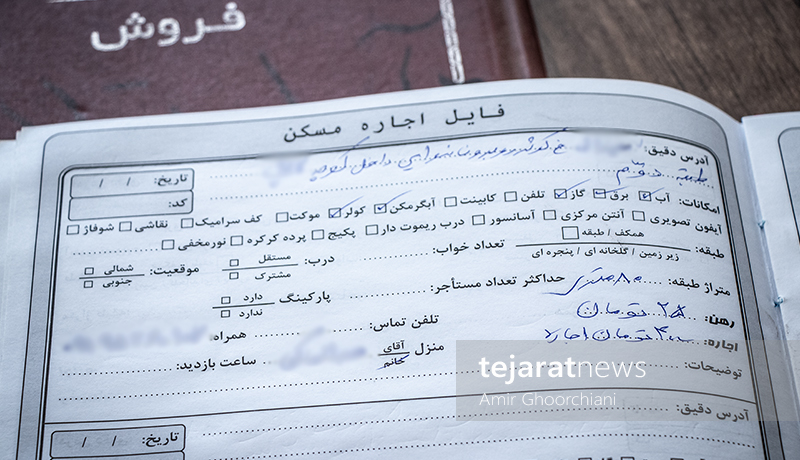 فروش
فایل اجاره مسکن
آدرس دقیق: خ
تاریخ: / /
کد:
طبقه دوم
امکانات: آب برق گاز تلفن کابینت آبگرمکن کولر موکت کف سرامیک نقاشی شوفاژ
آیفون تصویری آنتن مرکزی آسانسور درب ریموت دار پکیج پرده کرکره نورمخفی
طبقه: همکف / طبقه
زیر زمین / گلخانه ای / پنجره ای
تعداد خواب:
درب: مستقل
مشترک
موقعیت: شمالی
جنوبی
متراژ طبقه: ۸۰ متری
حداکثر تعداد مستأجر:
پارکینگ دارد
ندارد
رهن: ۲۵ تومان
تلفن تماس:
همراه:
اجاره: تومان اجاره
منزل آقای
خانم
ساعت بازدید:
توضیحات:
tejaratnews
Amir Ghoorchiani
آدرس دقیق:
تاریخ: / /